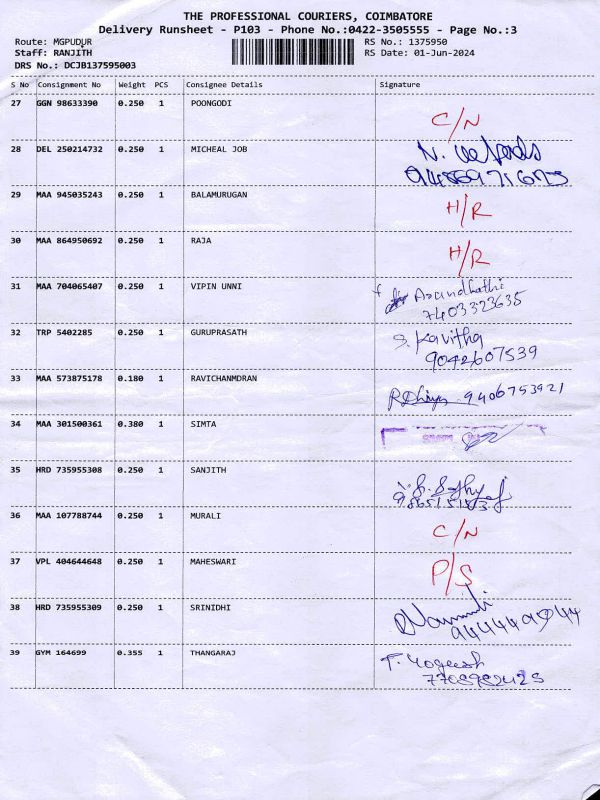 THE PROFESSIONAL COURIERS, COIMBATORE
Delivery Runsheet - P103 - Phone No.:0422-3505555 - Page No.:3
Route: MGPUDUR RS No.: 1375950
Staff: RANJITH RS Date: 01-Jun-2024
DRS No.: DCJB137595003
S No Consignment No Weight PCS Consignee Details Signature
27 GGN 98633390 0.250 1 POONGODI C/N
28 DEL 250214732 0.250 1 MICHEAL JOB N.
29 MAA 945035243 0.250 1 BALAMURUGAN H/R
30 MAA 864950692 0.250 1 RAJA H/R
31 MAA 704065407 0.250 1 VIPIN UNNI Arundhathi
7403323635
32 TRP 5402285 0.250 1 GURUPRASATH S. Kavitha
9042607539
33 MAA 573875178 0.180 1 RAVICHANMDRAN 9406753921
34 MAA 301500361 0.380 1 SIMTA
35 HRD 735955308 0.250 1 SANJITH
36 MAA 107788744 0.250 1 MURALI C/N
37 VPL 404644648 0.250 1 MAHESWARI P/S
38 HRD 735955309 0.250 1 SRINIDHI
39 GYM 164699 0.355 1 THANGARAJ T. Yogeesh